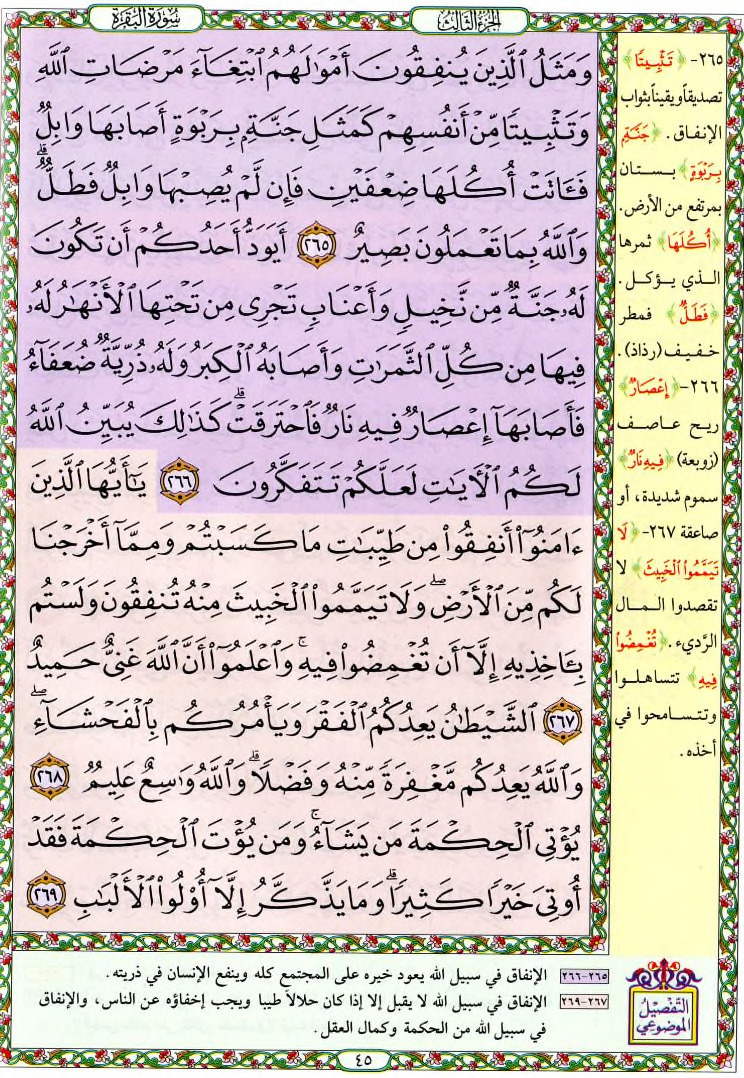 سورة البقرة
الجزء الثالث
وَمَثَلُ ٱلَّذِينَ يُنفِقُونَ أَمْوَٰلَهُمُ ٱبْتِغَآءَ مَرْضَاتِ ٱللَّهِ
وَتَثْبِيتًا مِّنْ أَنفُسِهِمْ كَمَثَلِ جَنَّةٍۭ بِرَبْوَةٍ أَصَابَهَا وَابِلٌ
فَـَٔاتَتْ أُكُلَهَا ضِعْفَيْنِ فَإِن لَّمْ يُصِبْهَا وَابِلٌ فَطَلٌّ ۗ
وَٱللَّهُ بِمَا تَعْمَلُونَ بَصِيرٌ ٢٦٥ أَيَوَدُّ أَحَدُكُمْ أَن تَكُونَ
لَهُۥ جَنَّةٌ مِّن نَّخِيلٍ وَأَعْنَابٍ تَجْرِى مِن تَحْتِهَا ٱلْأَنْهَٰرُ لَهُۥ
فِيهَا مِن كُلِّ ٱلثَّمَرَٰتِ وَأَصَابَهُ ٱلْكِبَرُ وَلَهُۥ ذُرِّيَّةٌ ضُعَفَآءُ
فَأَصَابَهَآ إِعْصَارٌ فِيهِ نَارٌ فَٱحْتَرَقَتْ ۗ كَذَٰلِكَ يُبَيِّنُ ٱللَّهُ
لَكُمُ ٱلْـَٔايَٰتِ لَعَلَّكُمْ تَتَفَكَّرُونَ ٢٦٦ يَٰٓأَيُّهَا ٱلَّذِينَ
ءَامَنُوٓا۟ أَنفِقُوا۟ مِن طَيِّبَٰتِ مَا كَسَبْتُمْ وَمِمَّآ أَخْرَجْنَا
لَكُم مِّنَ ٱلْأَرْضِ ۖ وَلَا تَيَمَّمُوا۟ ٱلْخَبِيثَ مِنْهُ تُنفِقُونَ وَلَسْتُم
بِـَٔاخِذِيهِ إِلَّآ أَن تُغْمِضُوا۟ فِيهِ ۚ وَٱعْلَمُوٓا۟ أَنَّ ٱللَّهَ غَنِىٌّ حَمِيدٌ
٢٦٧ ٱلشَّيْطَٰنُ يَعِدُكُمُ ٱلْفَقْرَ وَيَأْمُرُكُم بِٱلْفَحْشَآءِ ۖ
وَٱللَّهُ يَعِدُكُم مَّغْفِرَةً مِّنْهُ وَفَضْلًا ۗ وَٱللَّهُ وَٰسِعٌ عَلِيمٌ ٢٦٨
يُؤْتِى ٱلْحِكْمَةَ مَن يَشَآءُ ۚ وَمَن يُؤْتَ ٱلْحِكْمَةَ فَقَدْ
أُوتِىَ خَيْرًا كَثِيرًا ۗ وَمَا يَذَّكَّرُ إِلَّآ أُو۟لُوا۟ ٱلْأَلْبَٰبِ ٢٦٩
٢٦٥- ﴿تَثْبِيتًا﴾
تصديقاً ويقيناً بثواب
الإنفاق. ﴿جَنَّةٍۭ
بِرَبْوَةٍ﴾ بستان
بمرتفع من الأرض.
﴿أُكُلَهَا﴾ ثمرها
الذي يؤكل.
﴿فَطَلٌّ﴾ فمطر
خفيف (رذاذ).
٢٦٦- ﴿إِعْصَارٌ﴾
ريح عاصف
(زوبعة) ﴿فِيهِ نَارٌ﴾
سموم شديدة، أو
صاعقة ٢٦٧- ﴿لَا
تَيَمَّمُوا۟ ٱلْخَبِيثَ﴾ لا
تقصدوا المال
الرَّديء. ﴿تُغْمِضُوا۟
فِيهِ﴾ تتساهلوا
وتتسامحوا في
أخذه.
التفصيل
الموضوعي
٢٦٥-٢٦٦ الإنفاق في سبيل الله يعود خيره على المجتمع كله وينفع الإنسان في ذريته.
٢٦٧-٢٦٩ الإنفاق في سبيل الله لا يقبل إلا إذا كان حلالاً طيبا ويجب إخفاؤه عن الناس، والإنفاق
في سبيل الله من الحكمة وكمال العقل.
٤٥